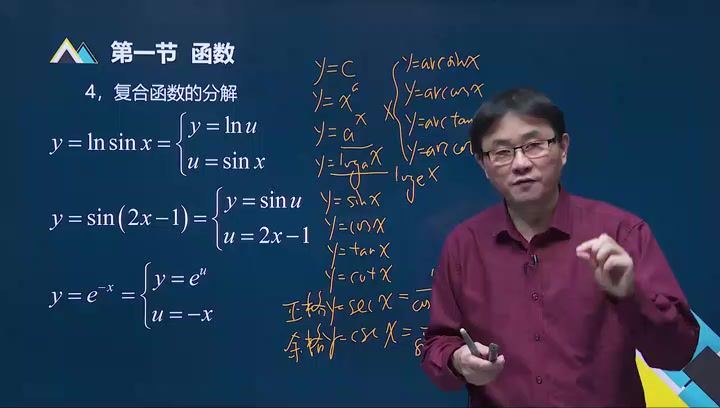 第一节 函数
4，复合函数的分解
y=ln sin x={y=ln u
u=sin x
y=sin(2x-1)={y=sin u
u=2x-1
y=e^{-x}={y=e^u
u=-x
y=C
y=x^a
y=a^x
y=log_a x
log_e x
y=sinx
y=cosx
y=tanx
y=cotx
正割y=secx=
余割y=cscx=
x{y=arcsinx
y=arccosx
y=arctan